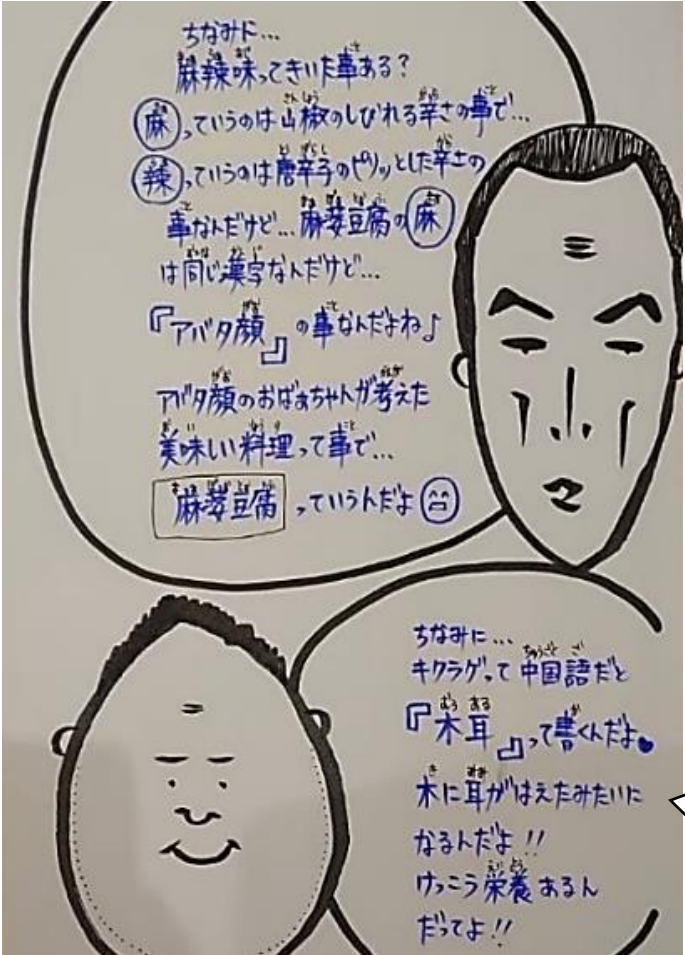 ちなみに…
麻辣味ってきいた事ある?
麻っていうのは山椒のしびれる辛さの事で…
辣っていうのは唐辛子のピリッとした辛さの
事なんだけど…麻婆豆腐の麻
は同じ漢字なんだけど…
『アバタ顔』の事なんだよね♪
アバタ顔のおばぁちゃんが考えた
美味しい料理って事で…
麻婆豆腐っていうんだよ
ちなみに…
キクラゲって中国語だと
『木耳』って書くんだよ♥
木に耳がはえたみたいに
なるんだよ!!
けっこう栄養あるん
だってよ!!